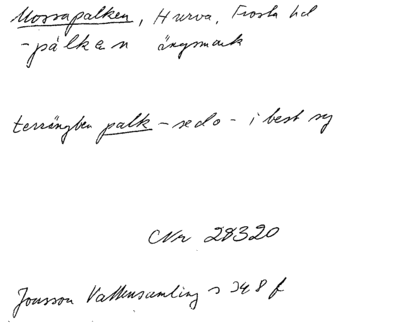 Mossapalken, Hurva, Frosta hd
-pálkan ängsmark
terrängben palk - se do - i best sg
CNr 28320
Jonsson Vattensamling s 348 f